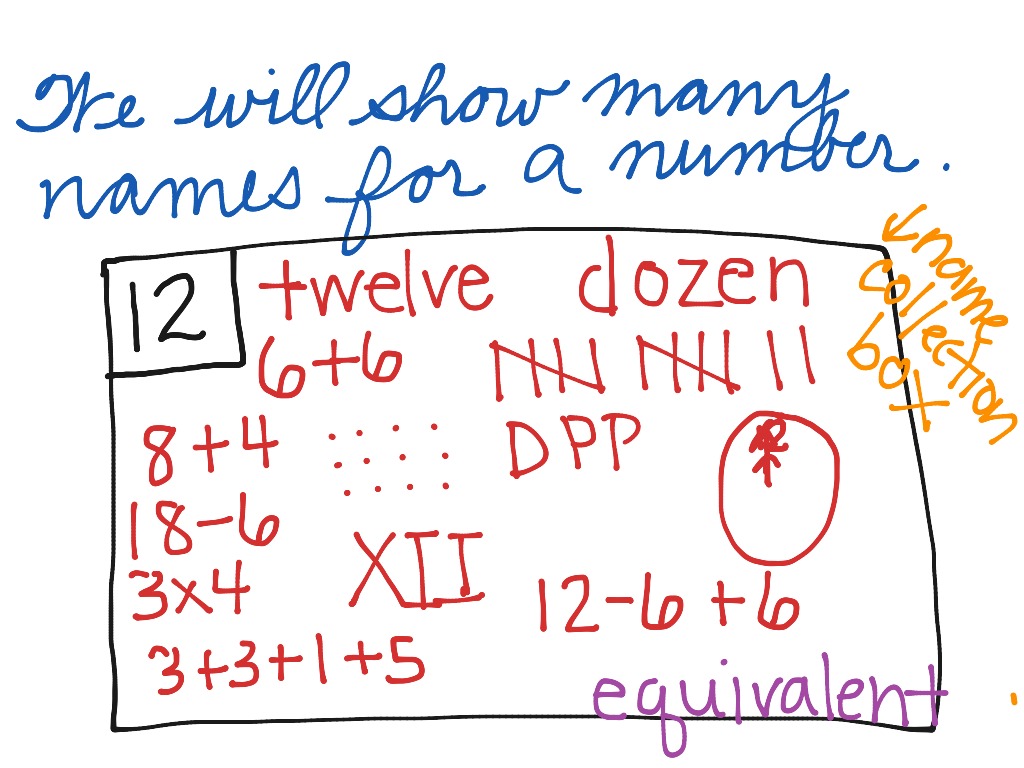 We will show many
names for a number.
name
collection
box
12
twelve dozen
6+6
8+4
DPP
18-6
XII
3x4
12-6+6
3+3+1+5
equivalent